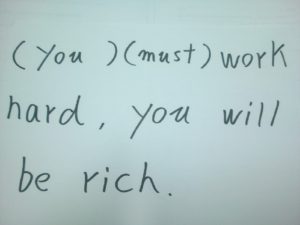 (You )(must) work
hard, you will
be rich.